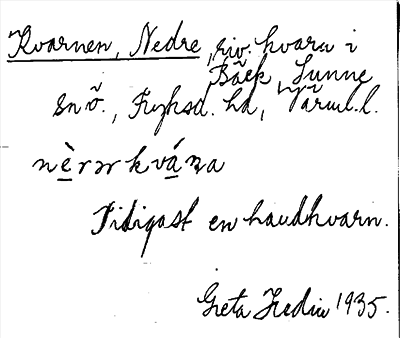 Kvarnen, Nedre, riv. kvarn i
Bäck, Sunne
sn ö., Fryksd. hd, Värml. l.
nèrər kváṇa
Tidigast en handkvarn.
Greta Hedin 1935.